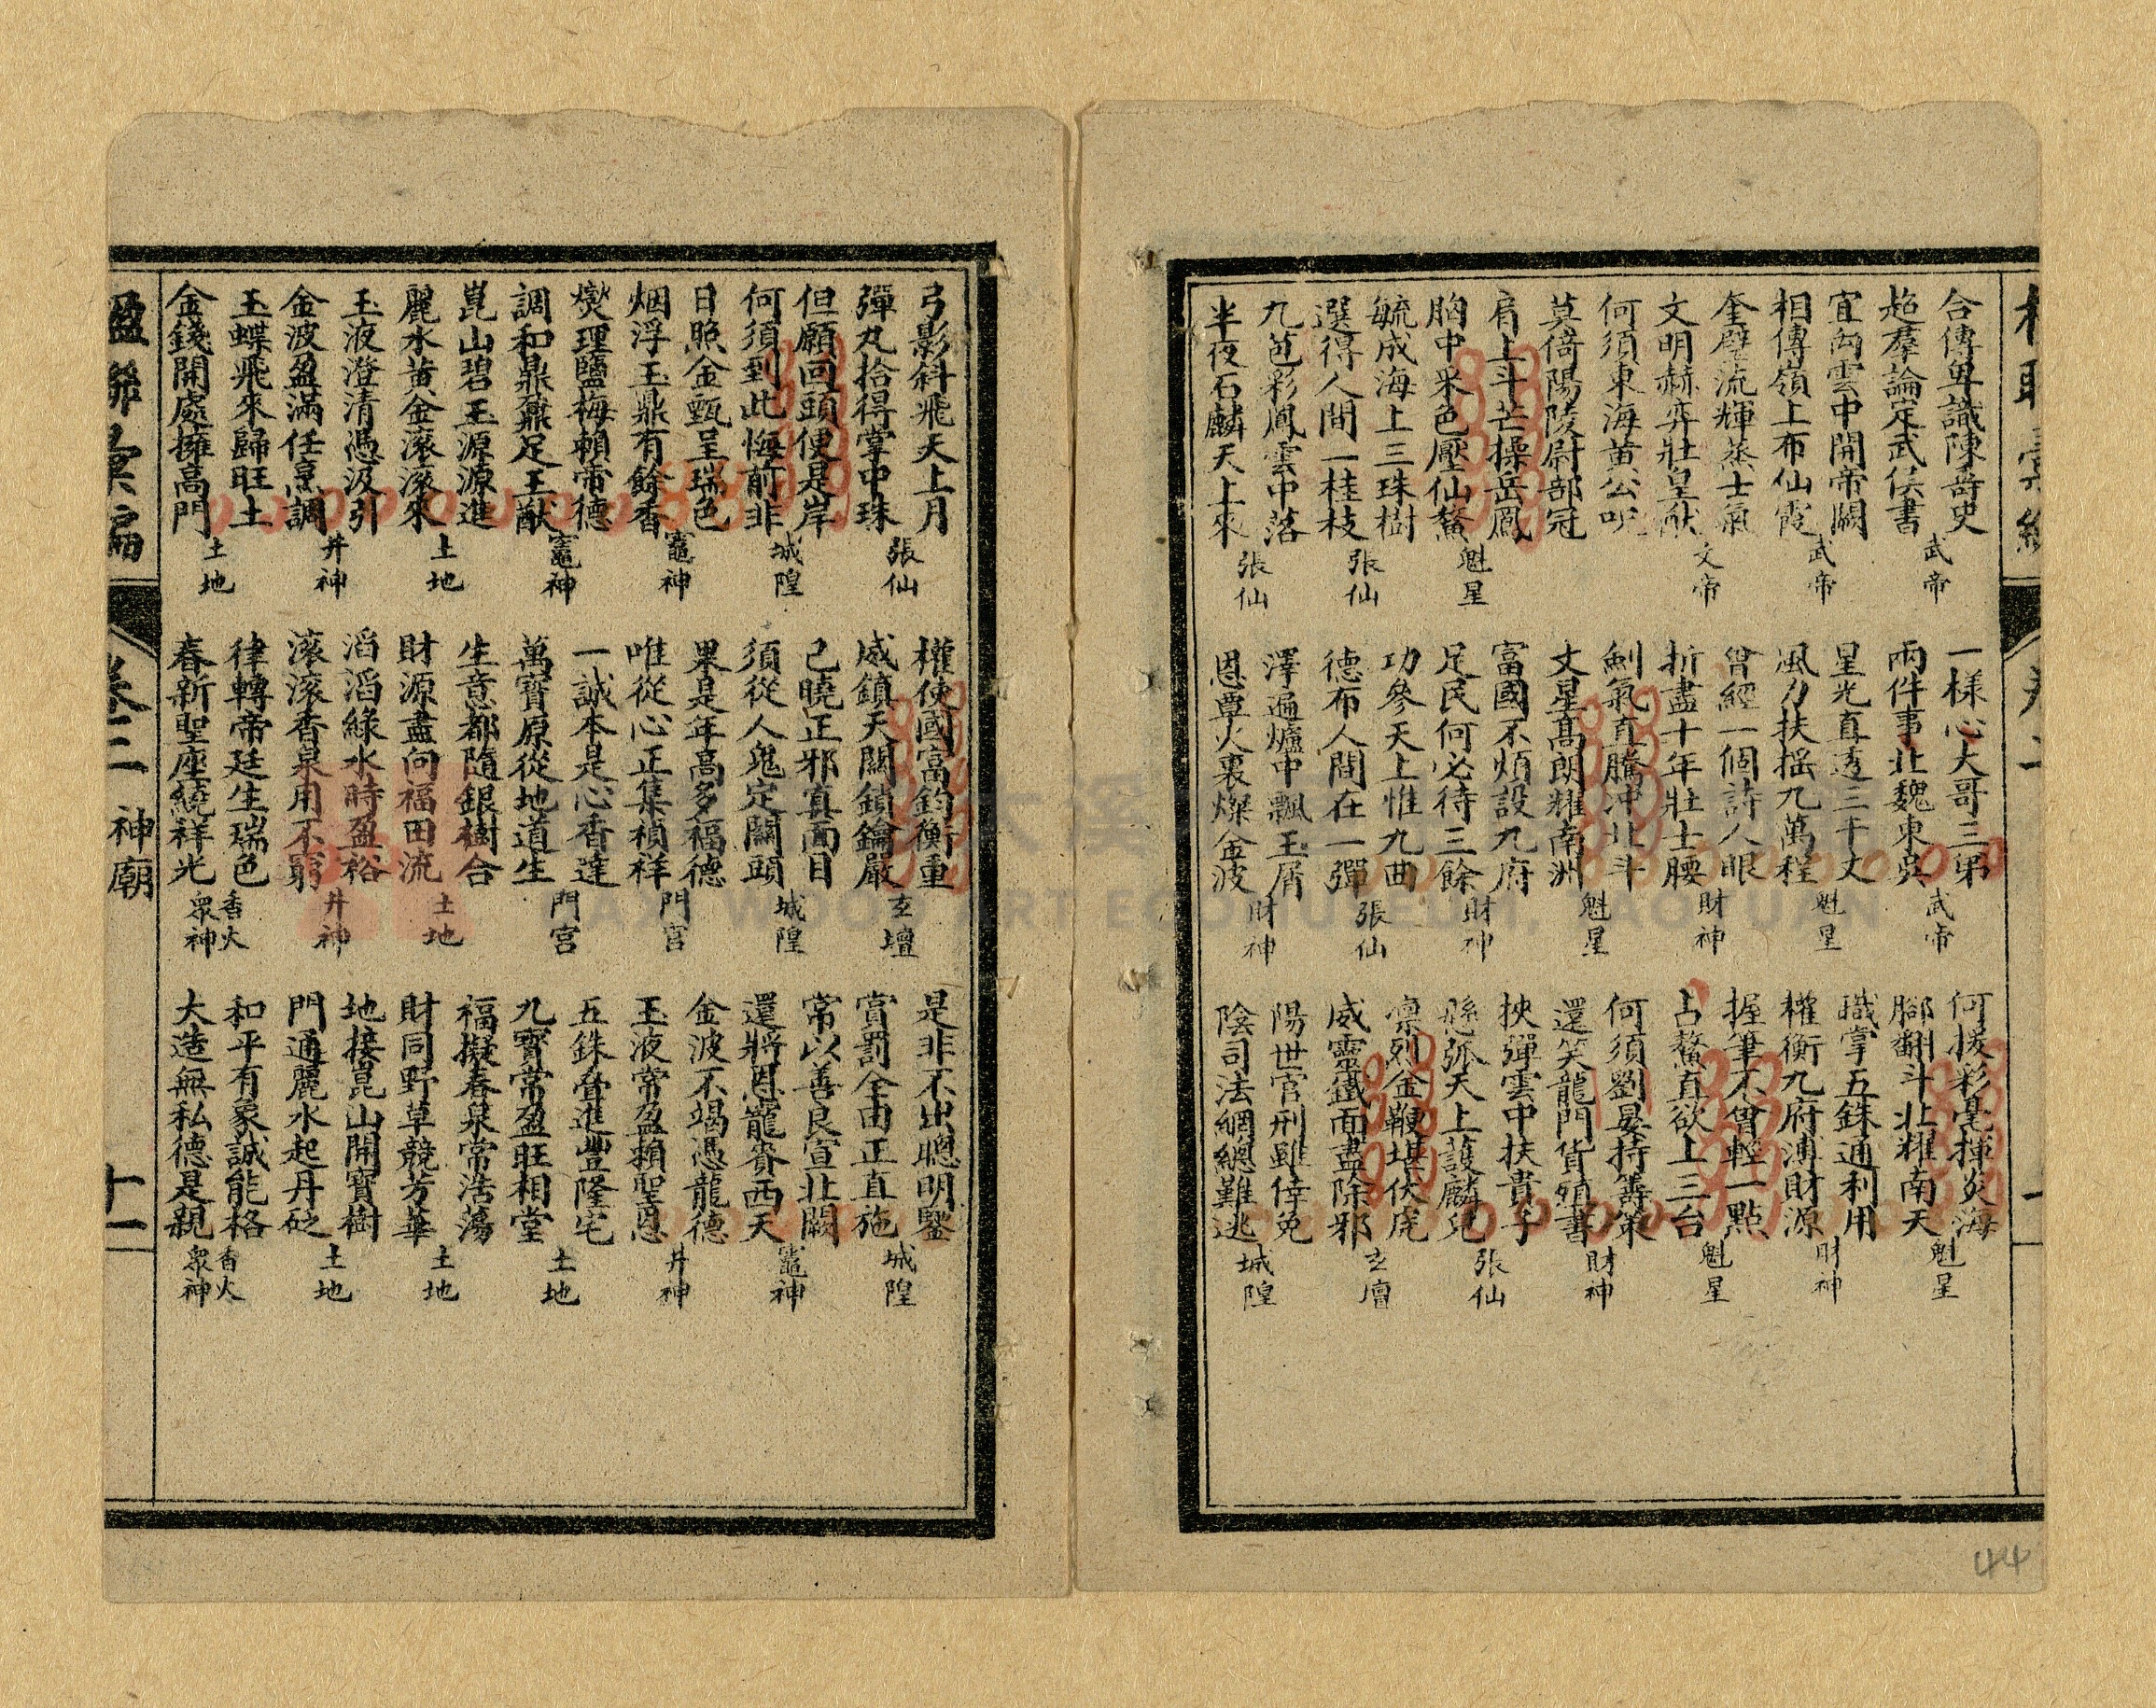 合傳卑識陳壽史
超羣論定武侯書
武帝
宜向雲中開帝闕
相傳嶺上布仙霞
武帝
奎壁流輝蒸士氣
文明赫弈壯皇猷
文帝
何須東海黃公呪
莫倚陽陵尉部冠
肩上斗芒操岳鳳
胸中釆色壓仙鰲
魁星
毓成海上三珠樹
選得人間一桂枝
張仙
九苞彩鳳雲中落
半夜石麟天上來
張仙
一樣心大哥三弟
兩件事北魏東吳
武帝
星光直透三千丈
風力扶摇九萬程
魁星
曾經一個詩人眼
折盡十年壯士腰
財神
劍氣直騰冲北斗
文星髙朗耀南洲
魁星
富國不煩設九府
足民何必待三餘
財神
功參天上惟九曲
德布人間在一彈
張仙
澤遍爐中飄玉屑
恩尊火裏燦金波
財神
何援彩毫揮炎海
腳翻斗北耀南天
魁星
職掌五銖通利用
權衡九府溥財源
財神
握筆不曾輕一點
占鰲直欲上三台
魁星
何須劉晏持籌策
還笑龍門貨殖書
財神
挾彈雲中扶貴子
懸弧天上護麟兒
張仙
凛烈金鞭堪伏虎
威靈鐵面盡除邪
玄壇
陽世官刑雖倖免
陰司法網總難逃
城隍
44
弓影斜飛天上月
彈丸拾得掌中珠
張仙
但願回頭便是岸
何須到此悔前非
城隍
日照金甄呈瑞色
烟浮玉鼎有餘香
竈神
燮理鹽梅賴帝德
調和鼎鼐足王猷
竈神
崑山碧玉源源進
麗水黃金滚滚來
土地
玉液澄清憑汲引
金波盈滿任烹調
井神
玉蝶飛來歸旺土
金錢開處擁高門
土地
權使國富鈞衡重
威鎮天關鎖鑰嚴
玄壇
已曉正邪寘面目
須從人鬼定關頭
城隍
果是年高多福德
唯從心正集禎祥
門宮
一誠本是心香達
萬寳原從地道生
門宮
生意都隨銀樹合
財源盡向福田流
土地
滔滔綠水時盈裕
滚滚香泉用不窮
井神
律轉帝廷生瑞色
春新聖座繞祥光
香火
衆神
是非不出聰明鑒
賞罰全由正直施
城隍
常以善良宣北闕
還將恩寵賚西天
竈神
金波不竭憑龍德
玉液常盈賴聖恩
井神
五銖疊進豐隆宅
九寶常盈旺相堂
土地
福擬春泉常浩蕩
財同野草競芳華
土地
地接崑山開寳樹
門通麗水起丹砂
土地
和平有象誠能格
大造無私德是親
香火
衆神
楹聯彙編
卷三
神廟
十一